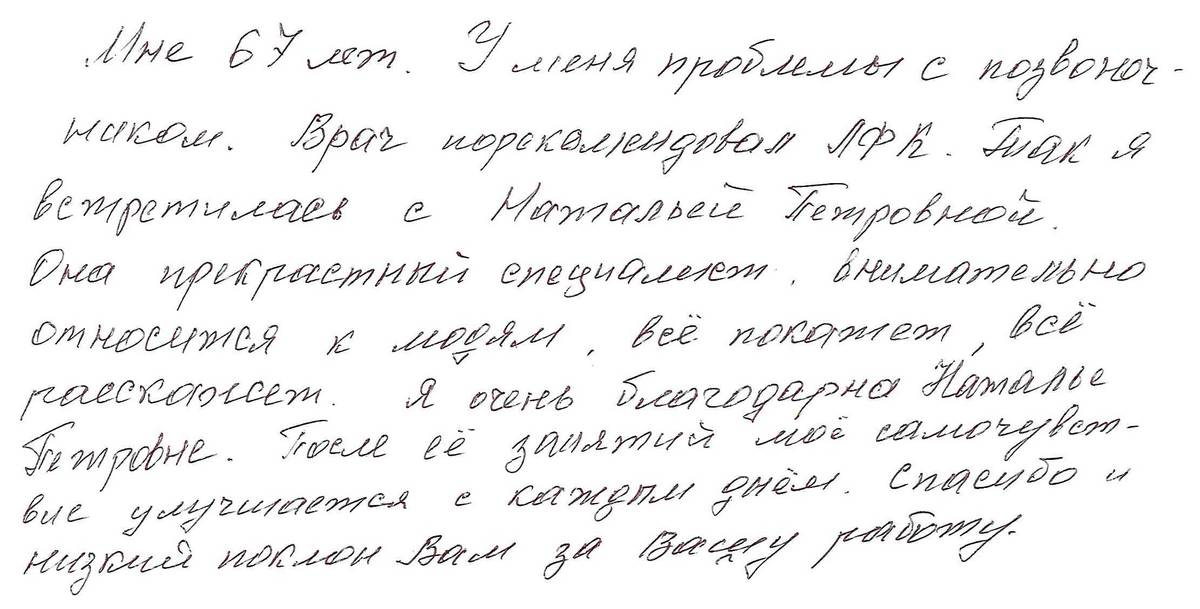 Мне 67 лет. У меня проблемы с позвоноч-
ником. Врач порекомендовал ЛФК. Так я
встретилась с Натальей Петровной.
Она прекрастный специалист, внимательно
относится к людям, всё покажет, всё
расскажет. Я очень благодарна Наталье
Петровне. После её занятий моё самочувст-
вие улучшается с каждым днём. Спасибо и
низкий поклон Вам за Вашу работу.